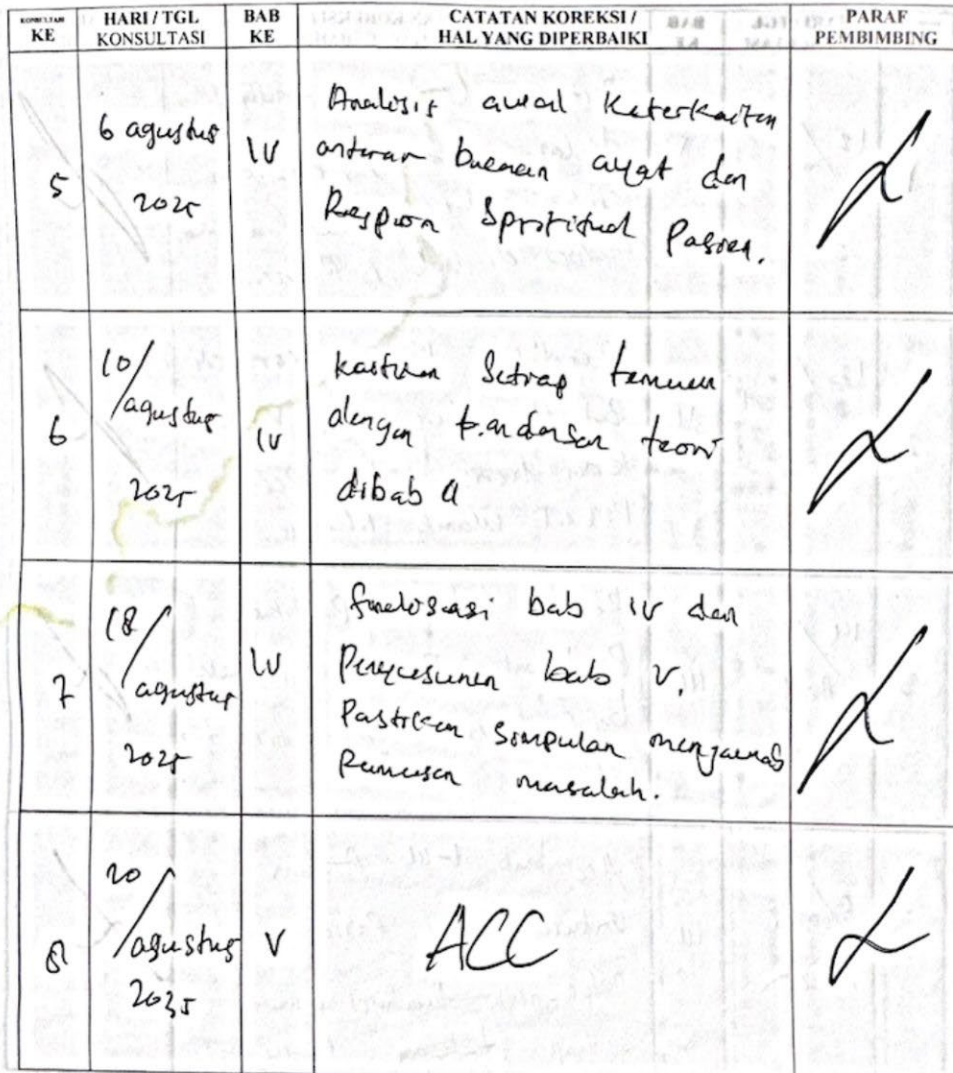 KONSULTASI KE
HARI / TGL KONSULTASI
BAB KE
CATATAN KOREKSI / HAL YANG DIPERBAIKI
PARAF PEMBIMBING
5
6 agustus
2025
IV
Analisis awal Keterkaitan
antara bacaan ayat dan
Respon Spiritual Pasien.
6
10/
agustus
2025
IV
kaitkan Setiap temuan
dengan landasan teori
dibab II
7
18/
agustus
2025
IV
finalisasi bab IV dan
Penyusunan bab V.
Pastikan Simpulan menjawab
Rumusan masalah.
8
20
/agustus
2025
V
ACC